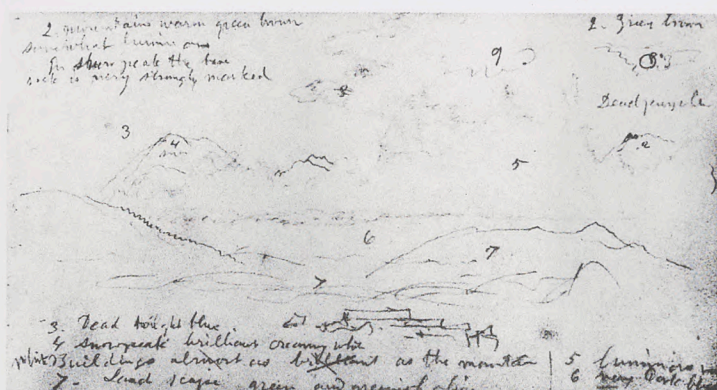 2. mountains warm green brown
somewhat luminous
In snow peak the bare
rock is very strongly marked
2. Green brown
9
3
Dead purple
3
4
2
5
6
7
7
3. Dead bright blue
4 snowpeak brilliant creamy white
Buildings almost as brilliant as the mountain
5 luminous
6 very Dark blue
7. Landscape green and